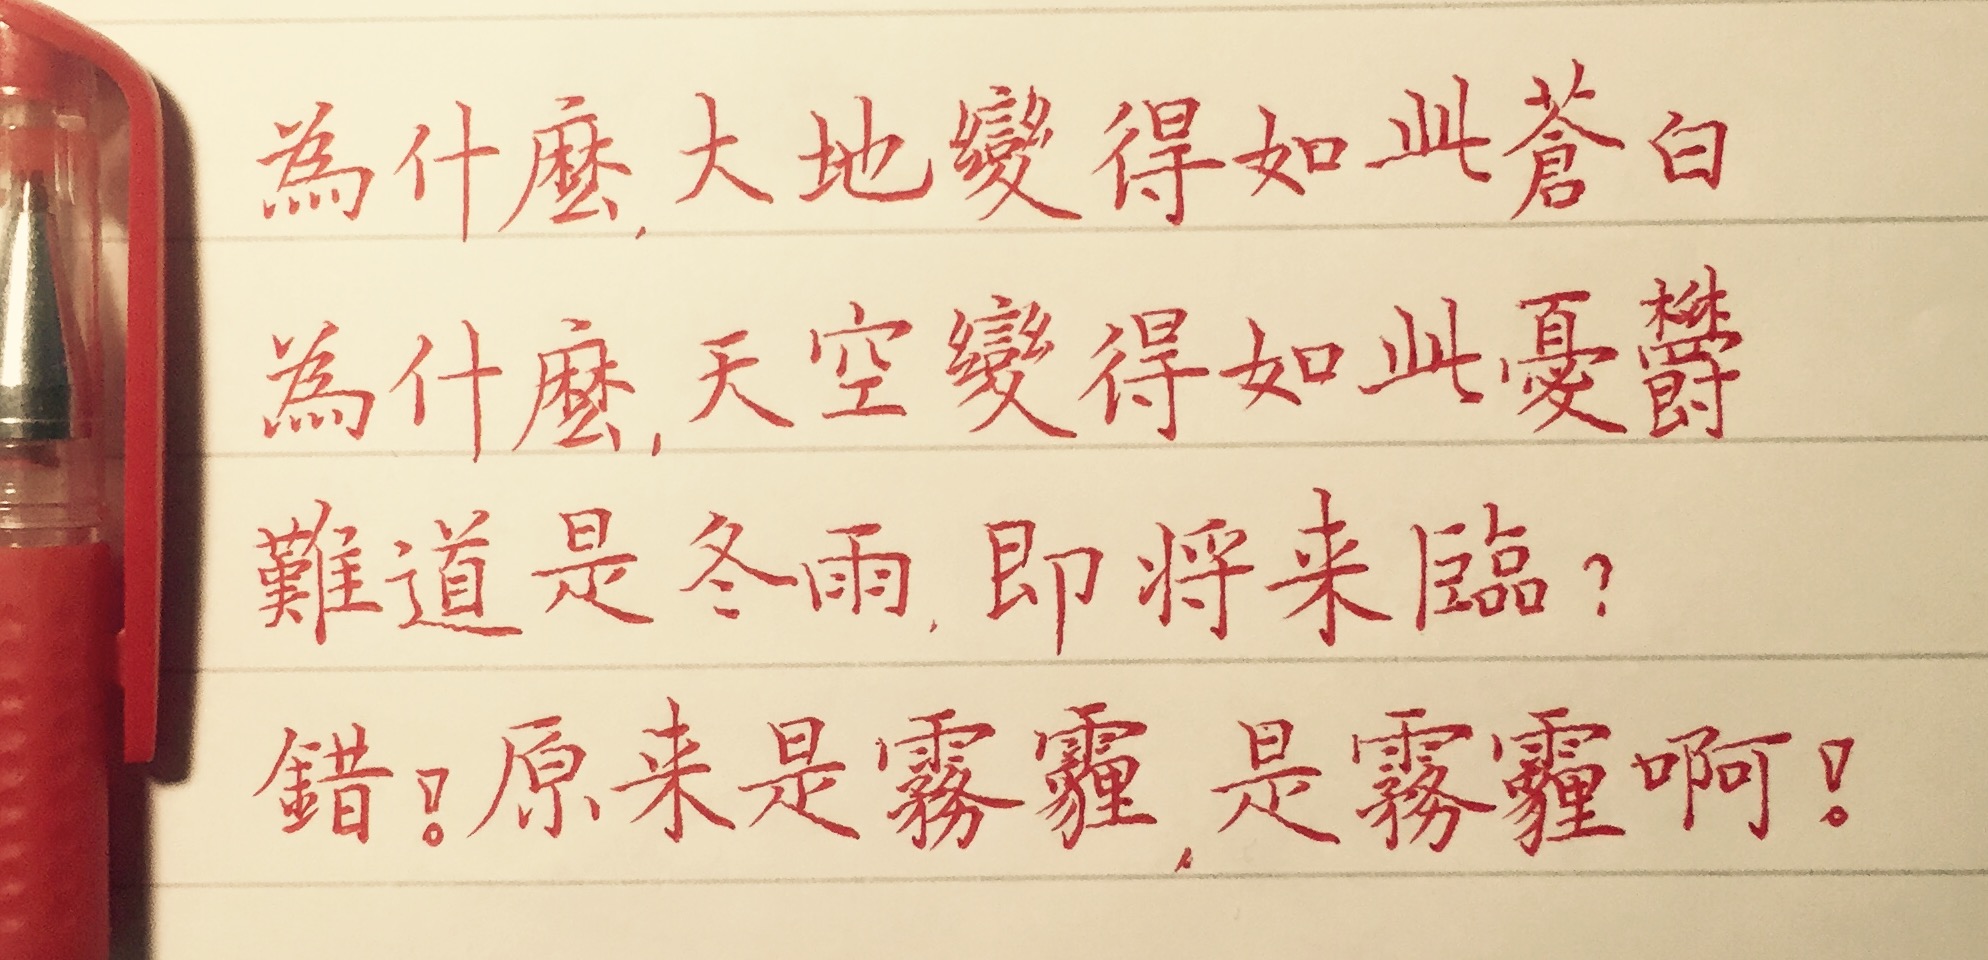 為什麼,大地變得如此蒼白
為什麼,天空變得如此憂鬱
難道是冬雨,即将来臨?
錯!原来是霧霾,是霧霾啊!